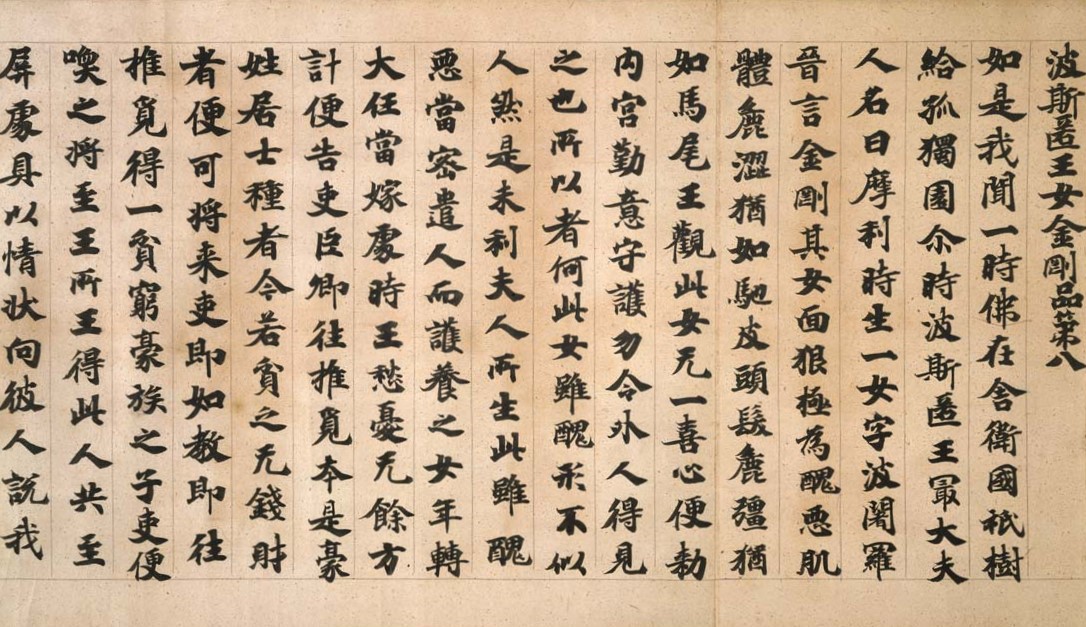 波斯匿王女金剛品第八
如是我聞一時佛在舍衛國祇樹
給孤獨園尒時波斯匿王冣大夫
人名曰摩利時生一女字波闍羅
晉言金剛其女面狠極為醜惡肌
體麁澀猶如馳皮頭髮麁彊猶
如馬尾王觀此女无一喜心便勑
内宮勤意守護勿令外人得見
之也所以者何此女雖醜形不似
人然是末利夫人所生此雖醜
惡當密遣人而護養之女年轉
大任當嫁處時王愁憂无餘方
計便告吏臣卿往推覓本是豪
姓居士種者今若貧之无錢財
者便可將来吏即如教即往
推覓得一貧窮豪族之子吏便
喚之將至王所王得此人共至
屏處具以情状向彼人説我